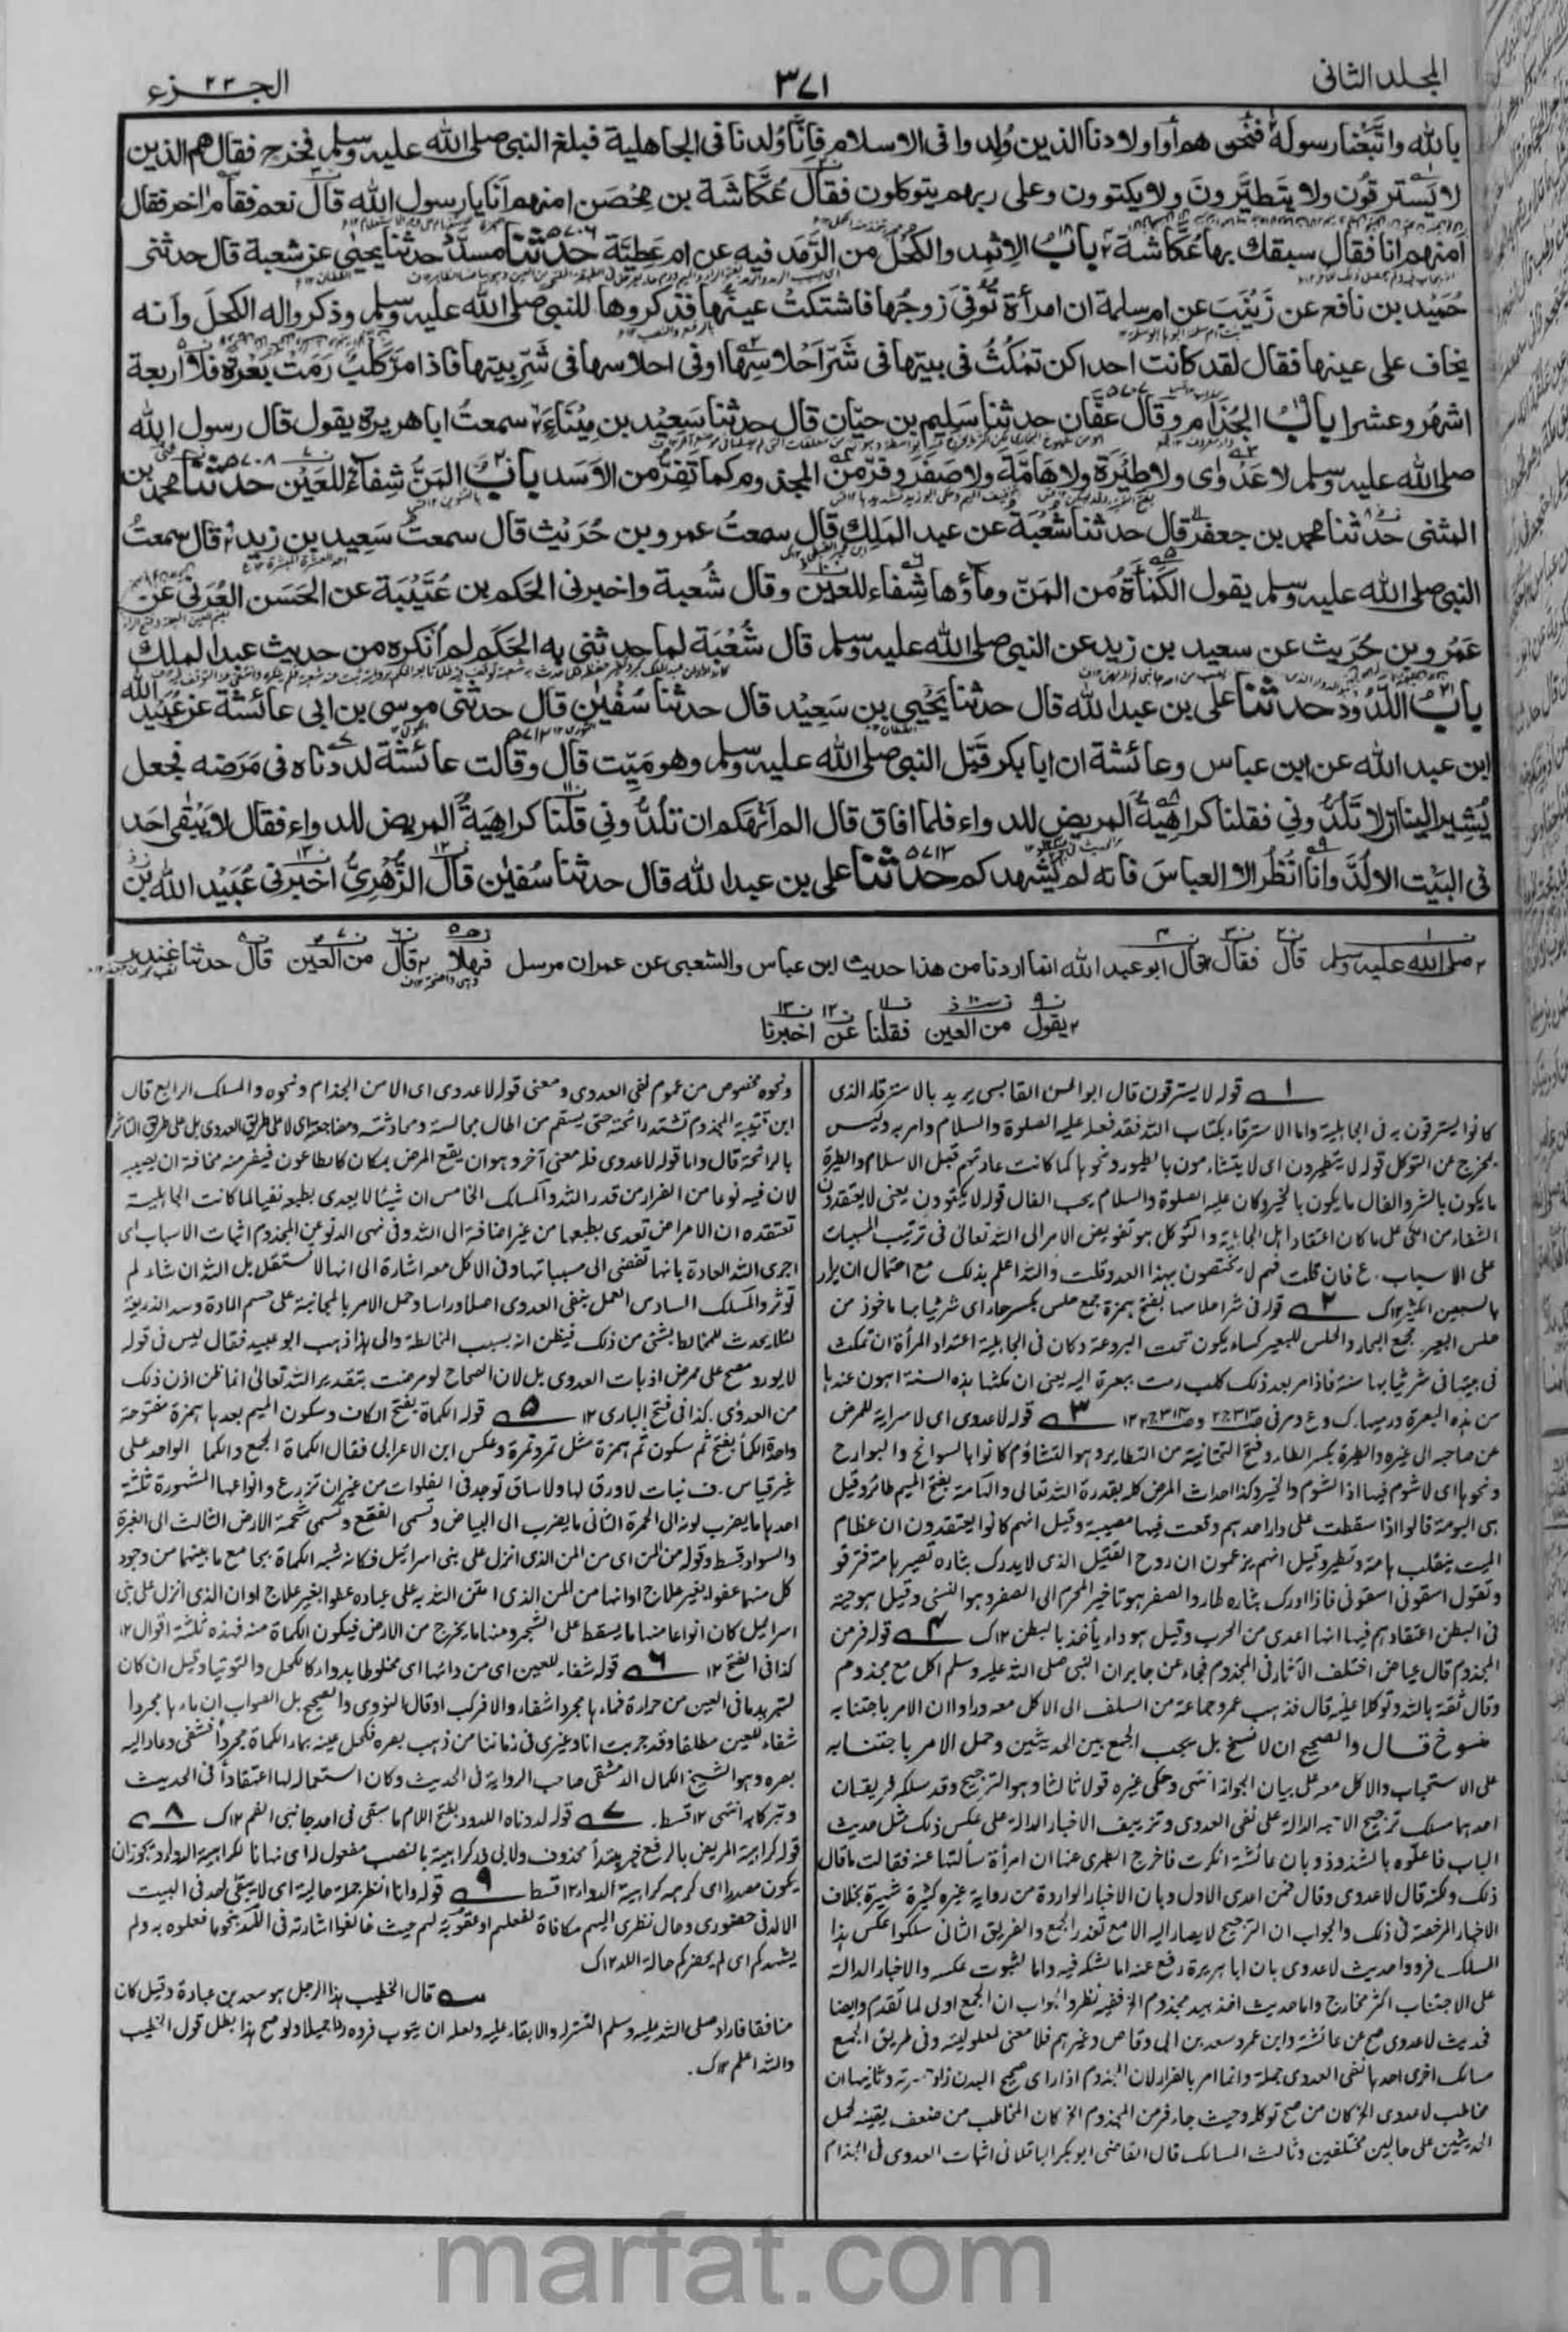 المجلد الثانی
٣٧١
الجزء ٢٣
بالله واتبعنا رسوله فنحن هم أو اولادنا الذين ولدوا فی الاسلام فانا ولدنا فی الجاهلية فبلغ النبی صلی الله عليه وسلم فخرج فقال هم الذين
لا يسترقون ولا يتطيرون ولا يكتوون وعلی ربهم يتوكلون فقال عكاشة بن محصن امنهم انا يا رسول الله قال نعم فقام اخر فقال
امنهم انا فقال سبقك بها عكاشة باب الاثمد والكحل من الرمد فيه عن ام عطية ٥٧٠٦ حدثنا مسدد حدثنا يحيی عن شعبة قال حدثنی
حميد بن نافع عن زينب عن ام سلمة ان امرأة توفی زوجها فاشتكت عينها فذكروها للنبی صلی الله عليه وسلم وذكروا له الكحل وانه
يخاف علی عينها فقال لقد كانت احداكن تمكث فی بيتها فی شر احلاسها او فی احلاسها فی شر بيتها فاذا مر كلب رمت بعرة فلا اربعة
اشهر وعشرا باب الجذام وقال عفان حدثنا سليم بن حيان قال حدثنا سعيد بن ميناء سمعت ابا هريرة يقول قال رسول الله
صلی الله عليه وسلم لا عدوای ولا طيرة ولا هامة ولا صفر وفر من المجذوم كما تفر من الاسد باب المن شفاء للعين ٥٧٠٨ حدثنا محمد بن
المثنی حدثنا محمد بن جعفر قال حدثنا شعبة عن عبد الملك قال سمعت عمرو بن حريث قال سمعت سعيد بن زيد قال سمعت
النبی صلی الله عليه وسلم يقول الكمأة من المن وماؤها شفاء للعين وقال شعبة واخبرنی الحكم بن عتيبة عن الحسن العرنی عن
عمرو بن حريث عن سعيد بن زيد عن النبی صلی الله عليه وسلم قال شعبة لما حدثنی به الحكم لم انكره من حديث عبد الملك
باب اللدود حدثنا علی بن عبد الله قال حدثنا يحيی بن سعيد قال حدثنا سفين قال حدثنی موسی بن ابی عائشة عن عبيد الله
ابن عبد الله عن ابن عباس وعائشة ان ابا بكر قبل النبی صلی الله عليه وسلم وهو ميت قال وقالت عائشة لددناه فی مرضه فجعل
يشير الينا ان لا تلدونی فقلنا كراهية المريض للدواء فلما افاق قال الم انهكم ان تلدونی قلنا كراهية المريض للدواء فقال لا يبقی احد
فی البيت الا لد وانا انظر الا العباس فانه لم يشهدكم ٥٧١٣ حدثنا علی بن عبد الله قال حدثنا سفين قال الزهری اخبرنی عبيد الله بن
صلی الله عليه وسلم قال فقال قال ابو عبد الله انما اردنا من هذا حديث ابن عباس والشعبی عن عمران مرسل فهلا قال من العين قال حدثنا غندر
يقول من العين فقلنا عن اخبرنا
١ قوله لا يسترقون قال ابو الحسن القابسی يريد بالاسترقاء الذی
كانوا يسترقون به فی الجاهلية واما الاسترقاء بكتاب الله فقد فعله عليه الصلوة والسلام وامر به وليس
بمخرج عن التوكل قوله لا يتطيرون ای لا يتشاءمون بالطيور ونحوها كما كانت عادتهم قبل الاسلام والطيرة
ما يكون بالشر والفال ما يكون بالخير وكان عليه الصلوة والسلام يحب الفال قوله لا يكتوون يعنی لا يعتقدون
الشفاء من الكی علی ما كان اعتقاد اهل الجاهلية والتوكل هو تفويض الامر الی الله تعالی فی ترتيب المسببات
علی الاسباب. ع فان قلت فهم لا يختصون بهذا العدد قلت والله اعلم بذلك مع احتمال ان يراد
بالسبعين الكثير ١٢ك ٢ قوله فی شر احلاسها بفتح همزة جمع حلس بكسر حاء ای شر ثيابها ماخوذ من
حلس البعير. مجمع البحار والحلس للبعير كساء يكون تحت البردعة وكان فی الجاهلية اعتداد المرأة ان تمكث
فی بيتها فی شر ثيابها سنة فاذا مر بعد ذلك كلب رمت ببعرة اليه يعنی ان مكثها هذه السنة اهون عندها
من هذه البعرة ورميها. ك وع ومر فی ٣ قوله لا عدوی ای لا سراية للمرض
عن صاحبه الی غيره والطيرة بكسر الطاء وفتح التحتانية من التطاير وهو التشاؤم كانوا بالسوانح والبوارح
ونحوها ای لا شوم فيها اذ الشوم والخير وكذا احداث المرض كله بقدرة الله تعالی والهامة بفتح الميم طائر وقيل
هی البومة قالوا اذا سقطت علی دار احدهم وقعت فيها مصيبة وقيل انهم كانوا يعتقدون ان عظام
الميت ينقلب هامة وتطير وقيل انهم يزعمون ان روح القتيل الذی لا يدرك بثاره تصير هامة فتزقو
وتقول اسقونی اسقونی فاذا ادرك بثاره طار والصفر هو تاخير المحرم الی الصفر وهو النسئ وقيل هو حية
فی البطن اعتقادهم فيها انها اعدی من الجرب وقيل هو داء يأخذ بالبطن ١٢ك ٤ قوله فر من
المجذوم قال عياض اختلف الآثار فی المجذوم فجاء عن جابر ان النبی صلی الله عليه وسلم اكل مع مجذوم
وقال ثقة بالله وتوكلا عليه قال فذهب عمر وجماعة من السلف الی الاكل معه وراوا ان الامر باجتنابه
منسوخ قال والصحيح ان لا نسخ بل يجب الجمع بين الحديثين وحمل الامر باجتنابه
علی الاستحباب والاكل معه علی بيان الجواز انتهی وحكی غيره قولا ثالثا وهو الترجيح وقد سلكه فريقان
احدهما سلك ترجيح الاخبار الدالة علی نفی العدوی وتزييف الاخبار الدالة علی عكس ذلك مثل حديث
الباب فاعلوه بالشذوذ وبان عائشة انكرت فاخرج الطبری عنها ان امرأة سألتها عنه فقالت ما قال
ذلك ولكنه قال لا عدوی وقال فمن اعدی الاول وبان الاخبار الواردة من رواية غيره كثيرة شهيرة بخلاف
الاخبار المرخصة فی ذلك والجواب ان الترجيح لا يصار اليه الا مع تعذر الجمع والفريق الثانی سلكوا عكس هذا
المسلك فردوا حديث لا عدوی بان ابا هريرة رجع عنه اما لشكه فيه واما لثبوت عكسه والاخبار الدالة
علی الاجتناب اكثر مخارج واما حديث اخذ بيد مجذوم الخ ففيه نظر والجواب ان الجمع اولی لما تقدم وايضا
فحديث لا عدوی صح عن عائشة وابن عمر وسعد بن ابی وقاص وغيرهم فلا معنی لمعلوليته وفی طريق الجمع
مسالك اخری احدها نفی العدوی جملة وانما امر بالفرار لان المجذوم اذا رای صحيح البدن زاد حسرته وثانيها ان
مخاطب لا عدوی الخ كان من صح توكله وحيث جاء فر من المجذوم الخ كان المخاطب من ضعف يقينه فحمل
الحديثين علی حالين مختلفين وثالث المسالك قال القاضی ابو بكر الباقلانی اثبات العدوی فی الجذام
ونحوه مخصوص من عموم نفی العدوی ومعنی قوله لا عدوی ای الا من الجذام ونحوه والمسلك الرابع قال
ابن قتيبة المجذوم تشتد رائحته حتی يسقم من اطال مجالسته ومحادثته ومضاجعته ای لا علی طريق العدوی بل علی طريق التاثر
بالرائحة قال واما قوله لا عدوی فله معنی آخر وهو ان يقع المرض بمكان كالطاعون فيفر منه مخافة ان يصيبه
لان فيه نوعا من الفرار من قدر الله والمسلك الخامس ان شيئا لا يعدی بطبعه نفيا لما كانت الجاهلية
تعتقده ان الامراض تعدی بطبعها من غير اضافة الی الله وفی نهی الدنو عن المجذوم اثبات الاسباب ای
اجری الله العادة بانها تفضی الی مسبباتها وفی الاكل معه اشارة الی انها لا تستقل بل الله ان شاء لم
تؤثر والمسلك السادس العمل بنفی العدوی اصلا وراسا وحمل الامر بالمجانبة علی حسم المادة وسد الذريعة
لئلا يحدث للمخالط بشئ من ذلك فيظن انه بسبب المخالطة والی هذا ذهب ابو عبيد فقال ليس فی قوله
لا يورد مصح علی ممرض اذ بات العدوی بل لان الصحاح لو مرضت بتقدير الله تعالی انما ظن اذن ذلك
من العدوی. كذا فی فتح الباری ١٢ ٥ قوله الكماة بفتح الكاف وسكون الميم بعدها همزة مفتوحة
واحدة الكمأ بفتح ثم سكون ثم همزة مثل تمر وتمرة وعكس ابن الاعرابی فقال الكماة الجمع والكما الواحد علی
غير قياس. ف نبات لا ورق لها ولا ساق توجد فی الفلوات من غير ان تزرع وانواعها المشهورة ثلثة
احدها ما يضرب لونه الی الحمرة الثانی ما يضرب الی البياض وتسمی الفقع وتسمی شحمة الارض الثالث الی الغبرة
والسواد قسط وقوله من المن ای من المن الذی انزل علی بنی اسرائيل فكانه شبه الكماة بجامع ما بينهما من وجود
كل منهما عفوا بغير علاج او انها من المن الذی امتن الله به علی عباده عفوا بغير علاج او ان الذی انزل علی بنی
اسرائيل كان انواعا منها ما يسقط علی الشجر ومنها ما يخرج من الارض فيكون الكماة منه فهذه ثلثة اقوال ١٢
كذا فی الفتح ١٢ ٦ قوله شفاء للعين ای من دائها ای مخلوطا بدواء كالكحل والتوتيا وقيل ان كان
لتبريد ما فی العين من حرارة فماءها مجردا شفاء والا فركب او قال النووی والصحيح بل الصواب ان ماءها مجردا
شفاء للعين مطلقا وقد جربت انا وغيری فی زماننا من ذهب بصره فكحل عينه بماء الكماة مجردا فشفی وعاد اليه
بصره وهو الشيخ الكمال الدمشقی صاحب الرواية فی الحديث وكان استعماله لها اعتقادا فی الحديث
وتبركا به انتهی ١٢ قسط. ٧ قوله لددناه اللدود بفتح اللام ما يسقی فی احد جانبی الفم ١٢ك ٨
قوله كراهية المريض بالرفع خبر مبتدأ محذوف ولابی ذر كراهية بالنصب مفعول له ای نهانا لكراهية الدواء ويجوز ان
يكون مصدرا ای كرهه كراهية الدواء ١٢ قسط ٩ قوله وانا انظر جملة حالية ای لا يبقی احد فی البيت
الا لد فی حضوری وحال نظری اليهم مكافاة لفعلهم او عقوبة لهم حيث خالفوا اشارته فی اللد بنحو ما فعلوه به ولم
يشهدكم ای لم يحضركم حالة اللد ١٢ك
قال الخطيب هذا الرجل هو سعد بن عبادة وقيل كان
منافقا فاراد صلی الله عليه وسلم التستر له والابقاء عليه ولعله ان يتوب فرده ردا جميلا ولو صح هذا بطل قول الخطيب
والله اعلم ١٢ك.
marfat.com